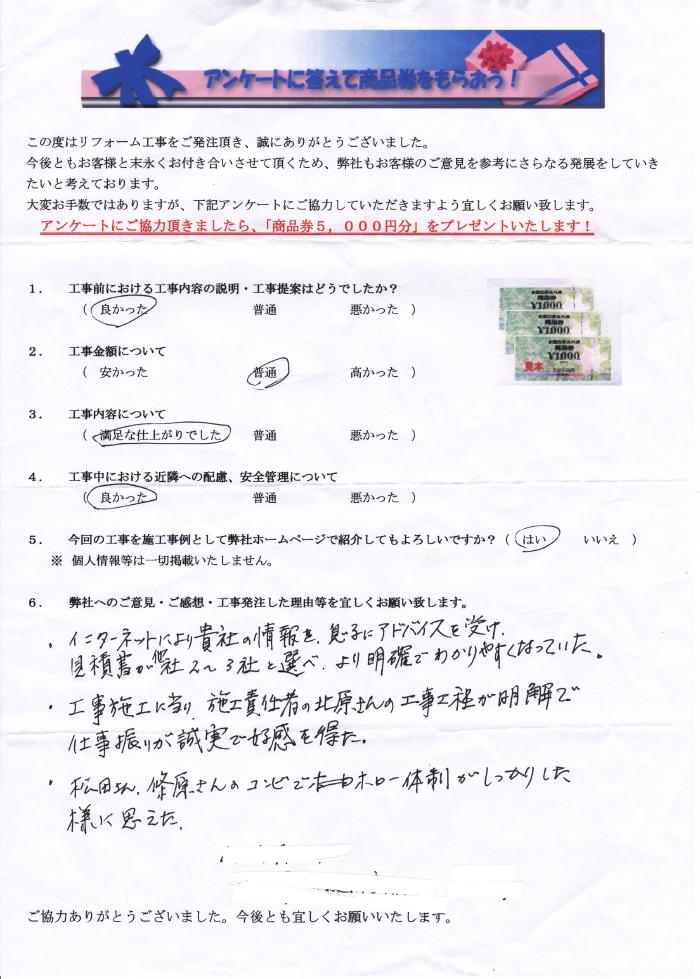 アンケートに答えて商品券をもらおう！
この度はリフォーム工事をご発注頂き、誠にありがとうございました。
今後ともお客様と末永くお付き合いさせて頂くため、弊社もお客様のご意見を参考にさらなる発展をしていき
たいと考えております。
大変お手数ではありますが、下記アンケートにご協力していただきますよう宜しくお願い致します。
アンケートにご協力頂きましたら、「商品券５，０００円分」をプレゼントいたします！
１． 工事前における工事内容の説明・工事提案はどうでしたか？
（ 良かった 普通 悪かった ）
２． 工事金額について
（ 安かった 普通 高かった ）
３． 工事内容について
（ 満足な仕上がりでした 普通 悪かった ）
４． 工事中における近隣への配慮、安全管理について
（ 良かった 普通 悪かった ）
５． 今回の工事を施工事例として弊社ホームページで紹介してもよろしいですか？（ はい いいえ ）
※ 個人情報等は一切掲載いたしません。
商品券
¥1000
商品券
¥1000
商品券
¥1000
見本
６． 弊社へのご意見・ご感想・工事発注した理由等を宜しくお願い致します。
・インターネットにより貴社の情報を、息子にアドバイスを受け、
見積書が他社2〜3社と選べ、より明確でわかりやすくなっていた。
・工事施工に当り、施工責任者の北原さんの工事工程が明解で
仕事振りが誠実で好感を得た。
・松田さん、篠原さんのコンビでホロー体制がしっかりした
様に思えた。
ご協力ありがとうございました。今後とも宜しくお願いいたします。